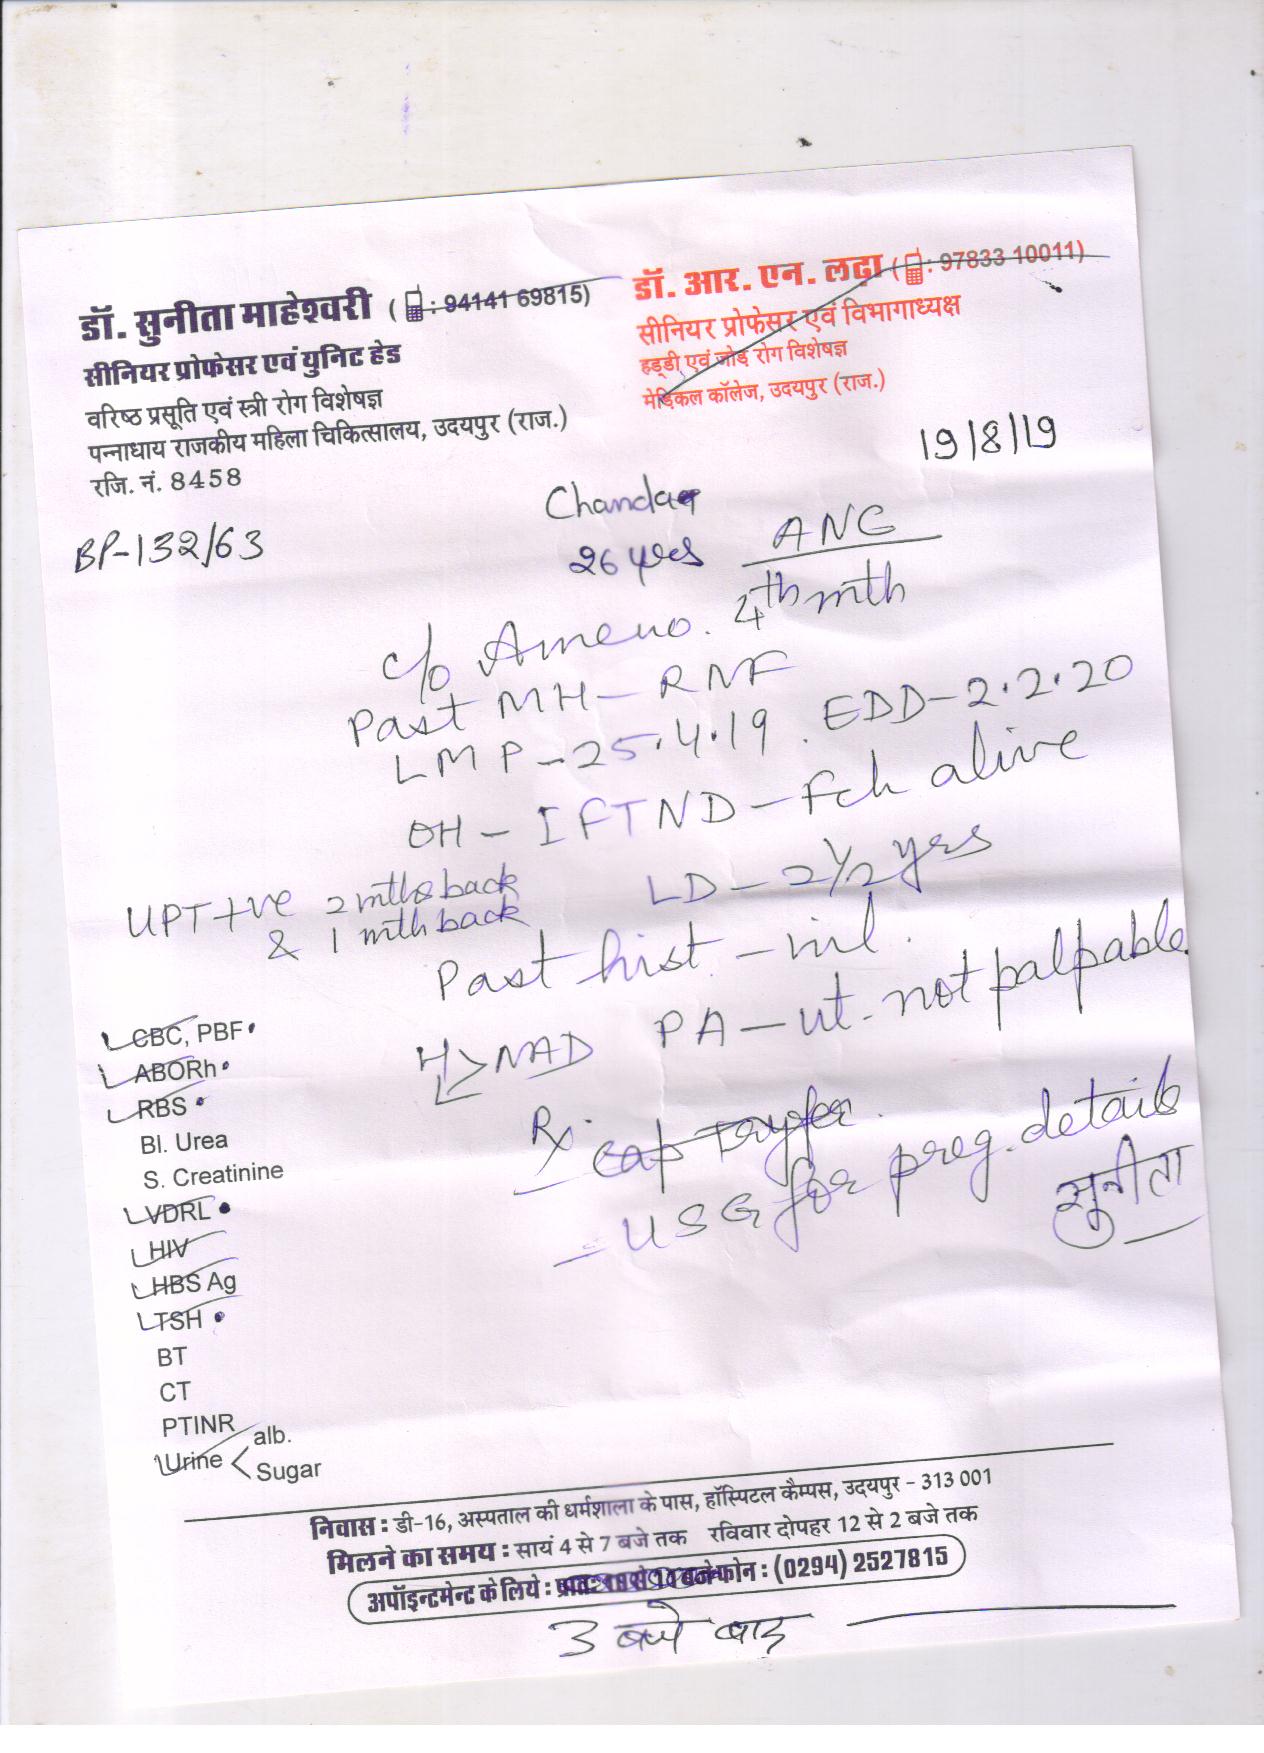 डॉ. सुनीता माहेश्वरी ( : 94141 69815)
सीनियर प्रोफेसर एवं युनिट हेड
वरिष्ठ प्रसूति एवं स्त्री रोग विशेषज्ञ
पन्नाधाय राजकीय महिला चिकित्सालय, उदयपुर (राज.)
रजि. नं. 8458
डॉ. आर. एन. लढ़ा ( : 97833 10011)
सीनियर प्रोफेसर एवं विभागाध्यक्ष
हड्डी एवं जोड़ रोग विशेषज्ञ
मेडिकल कॉलेज, उदयपुर (राज.)
19/8/19
BP-132/63
26 yrs
ANC
4th mth
c/o Ameno.
Past MH - RNF
LMP - 25.4.19. EDD - 2.2.20
OH - I FTND - Fch alive
LD - 2 1/2 yrs
UPT +ve 2 mths back
& 1 mth back
Past hist. - nil.
H
L > NAD PA - ut. not palpable
Rx.
Cap
- USG for preg. details
सुनीता
CBC, PBF
ABORh
RBS
Bl. Urea
S. Creatinine
VDRL
HIV
HBS Ag
TSH
BT
CT
PTINR
Urine < alb.
Sugar
निवास : डी-16, अस्पताल की धर्मशाला के पास, हॉस्पिटल कैम्पस, उदयपुर - 313 001
मिलने का समय : सायं 4 से 7 बजे तक रविवार दोपहर 12 से 2 बजे तक
अपॉइन्टमेन्ट के लिये : फोन : (0294) 2527815
3 बजे बाद